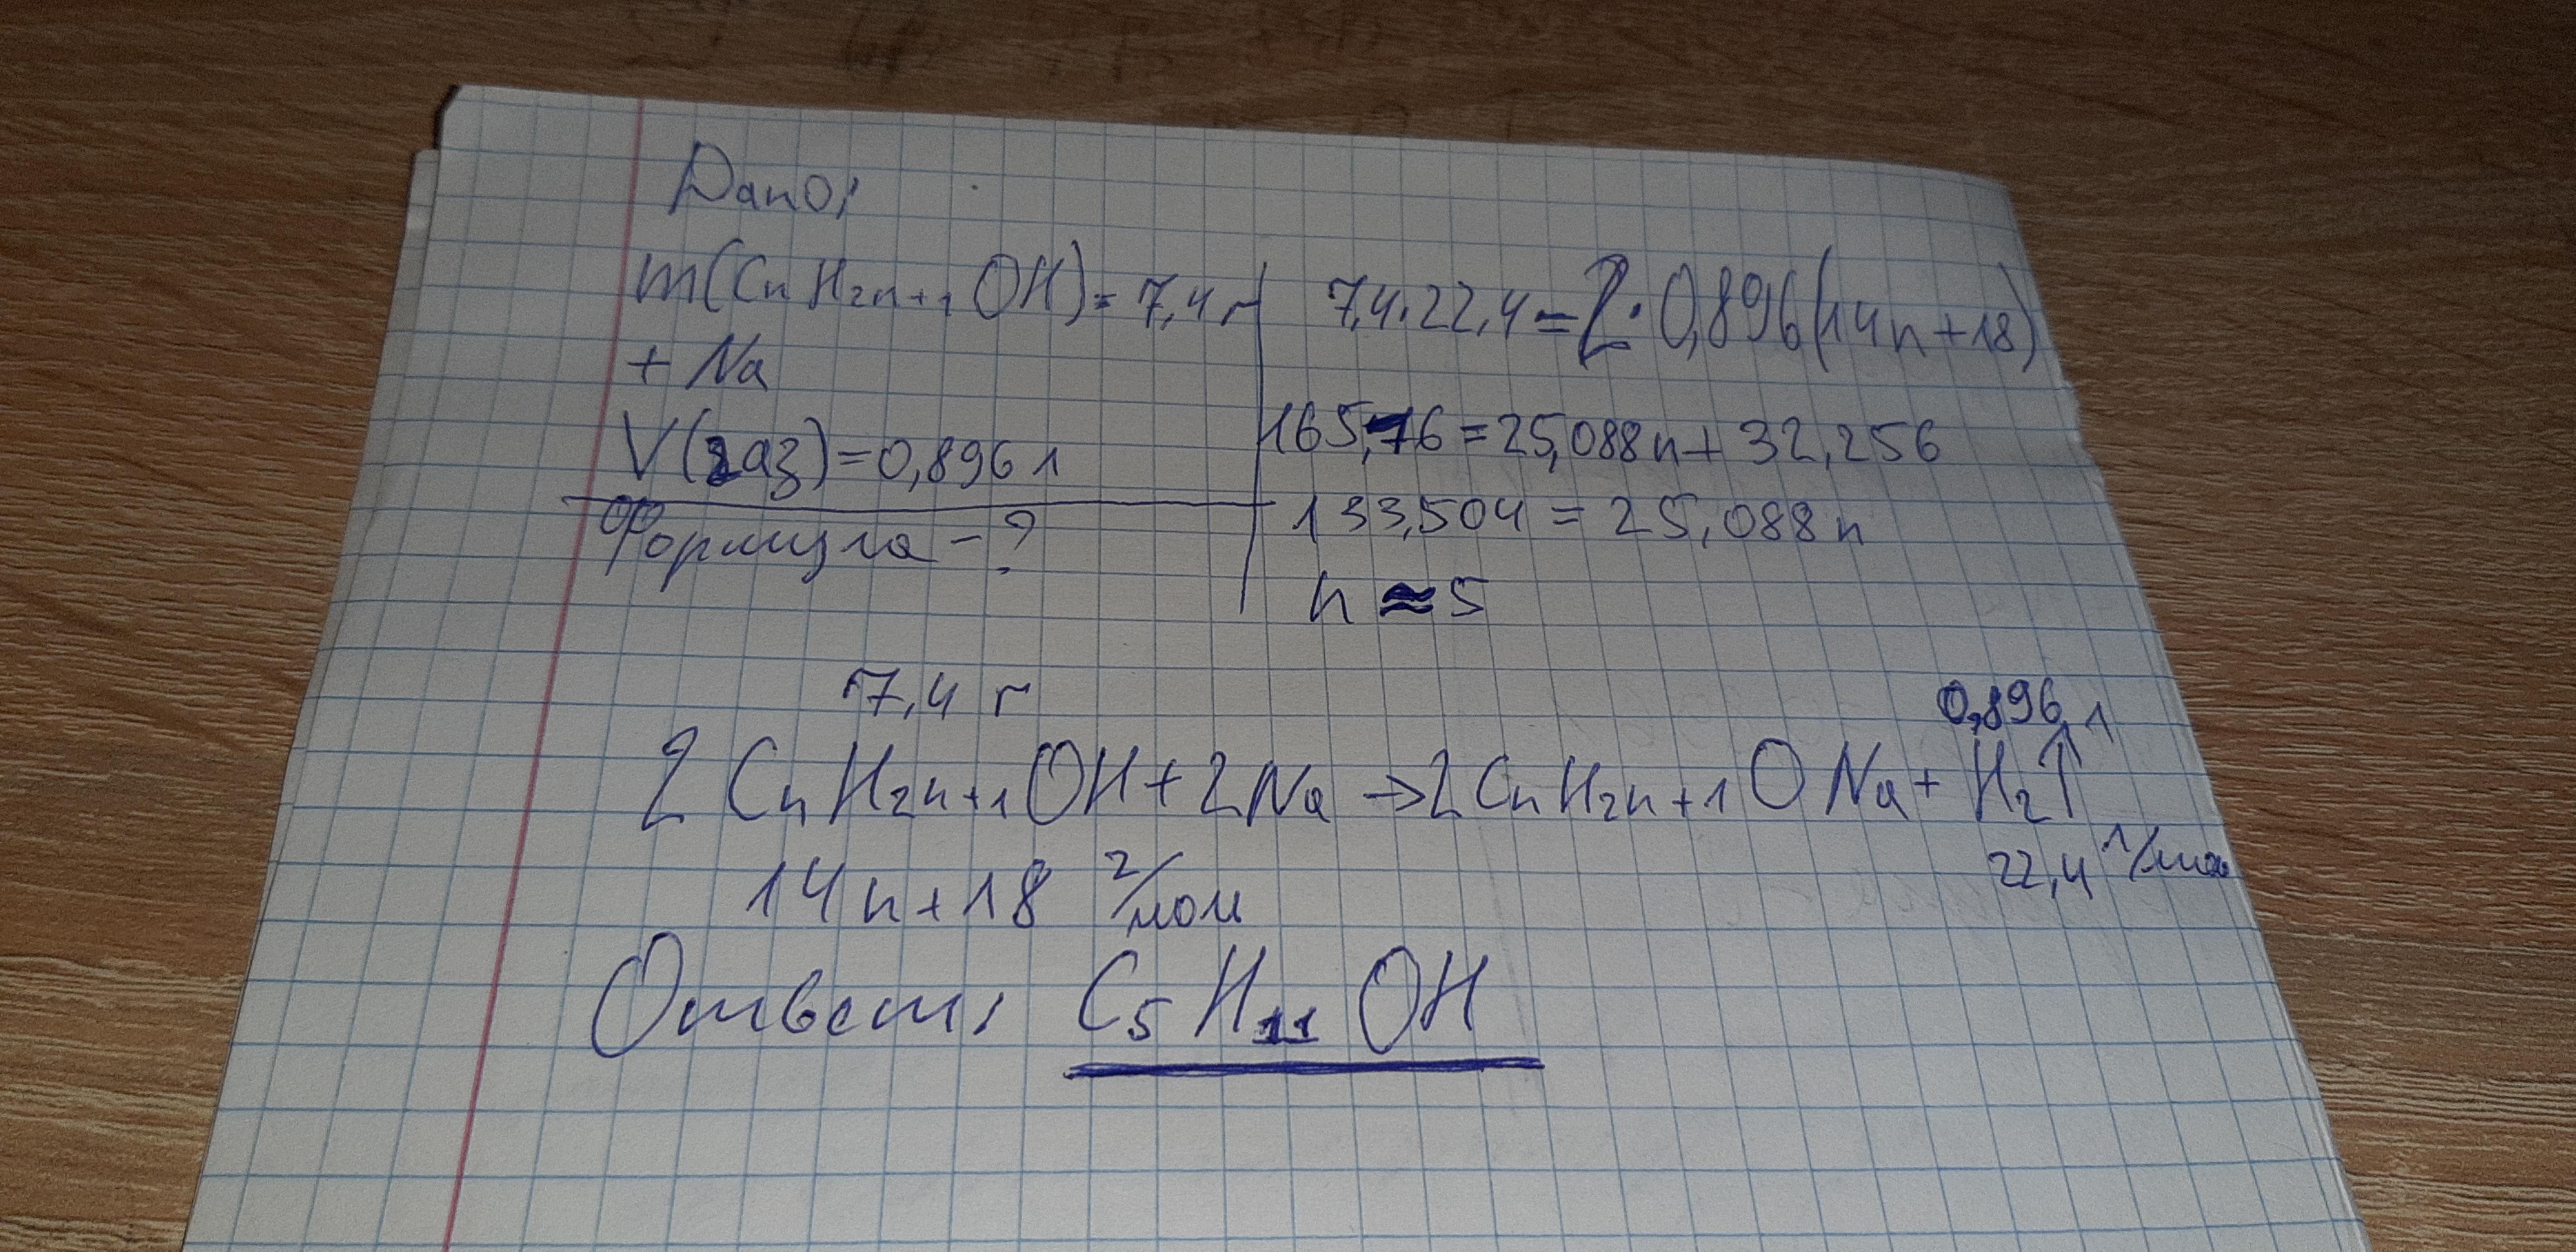 Дано:
m(CnH2n+1OH)=7,4 г
+ Na
V(газ)=0,896 л
Формула - ?
7,4·22,4=2·0,896(14n+18)
165,76=25,088n+32,256
133,504=25,088n
n≈5
7,4 г
0,896 л
2CnH2n+1OH+2Na→2CnH2n+1ONa+H2↑
14n+18 г/мол
22,4 л/мол
Ответ: C5H11OH